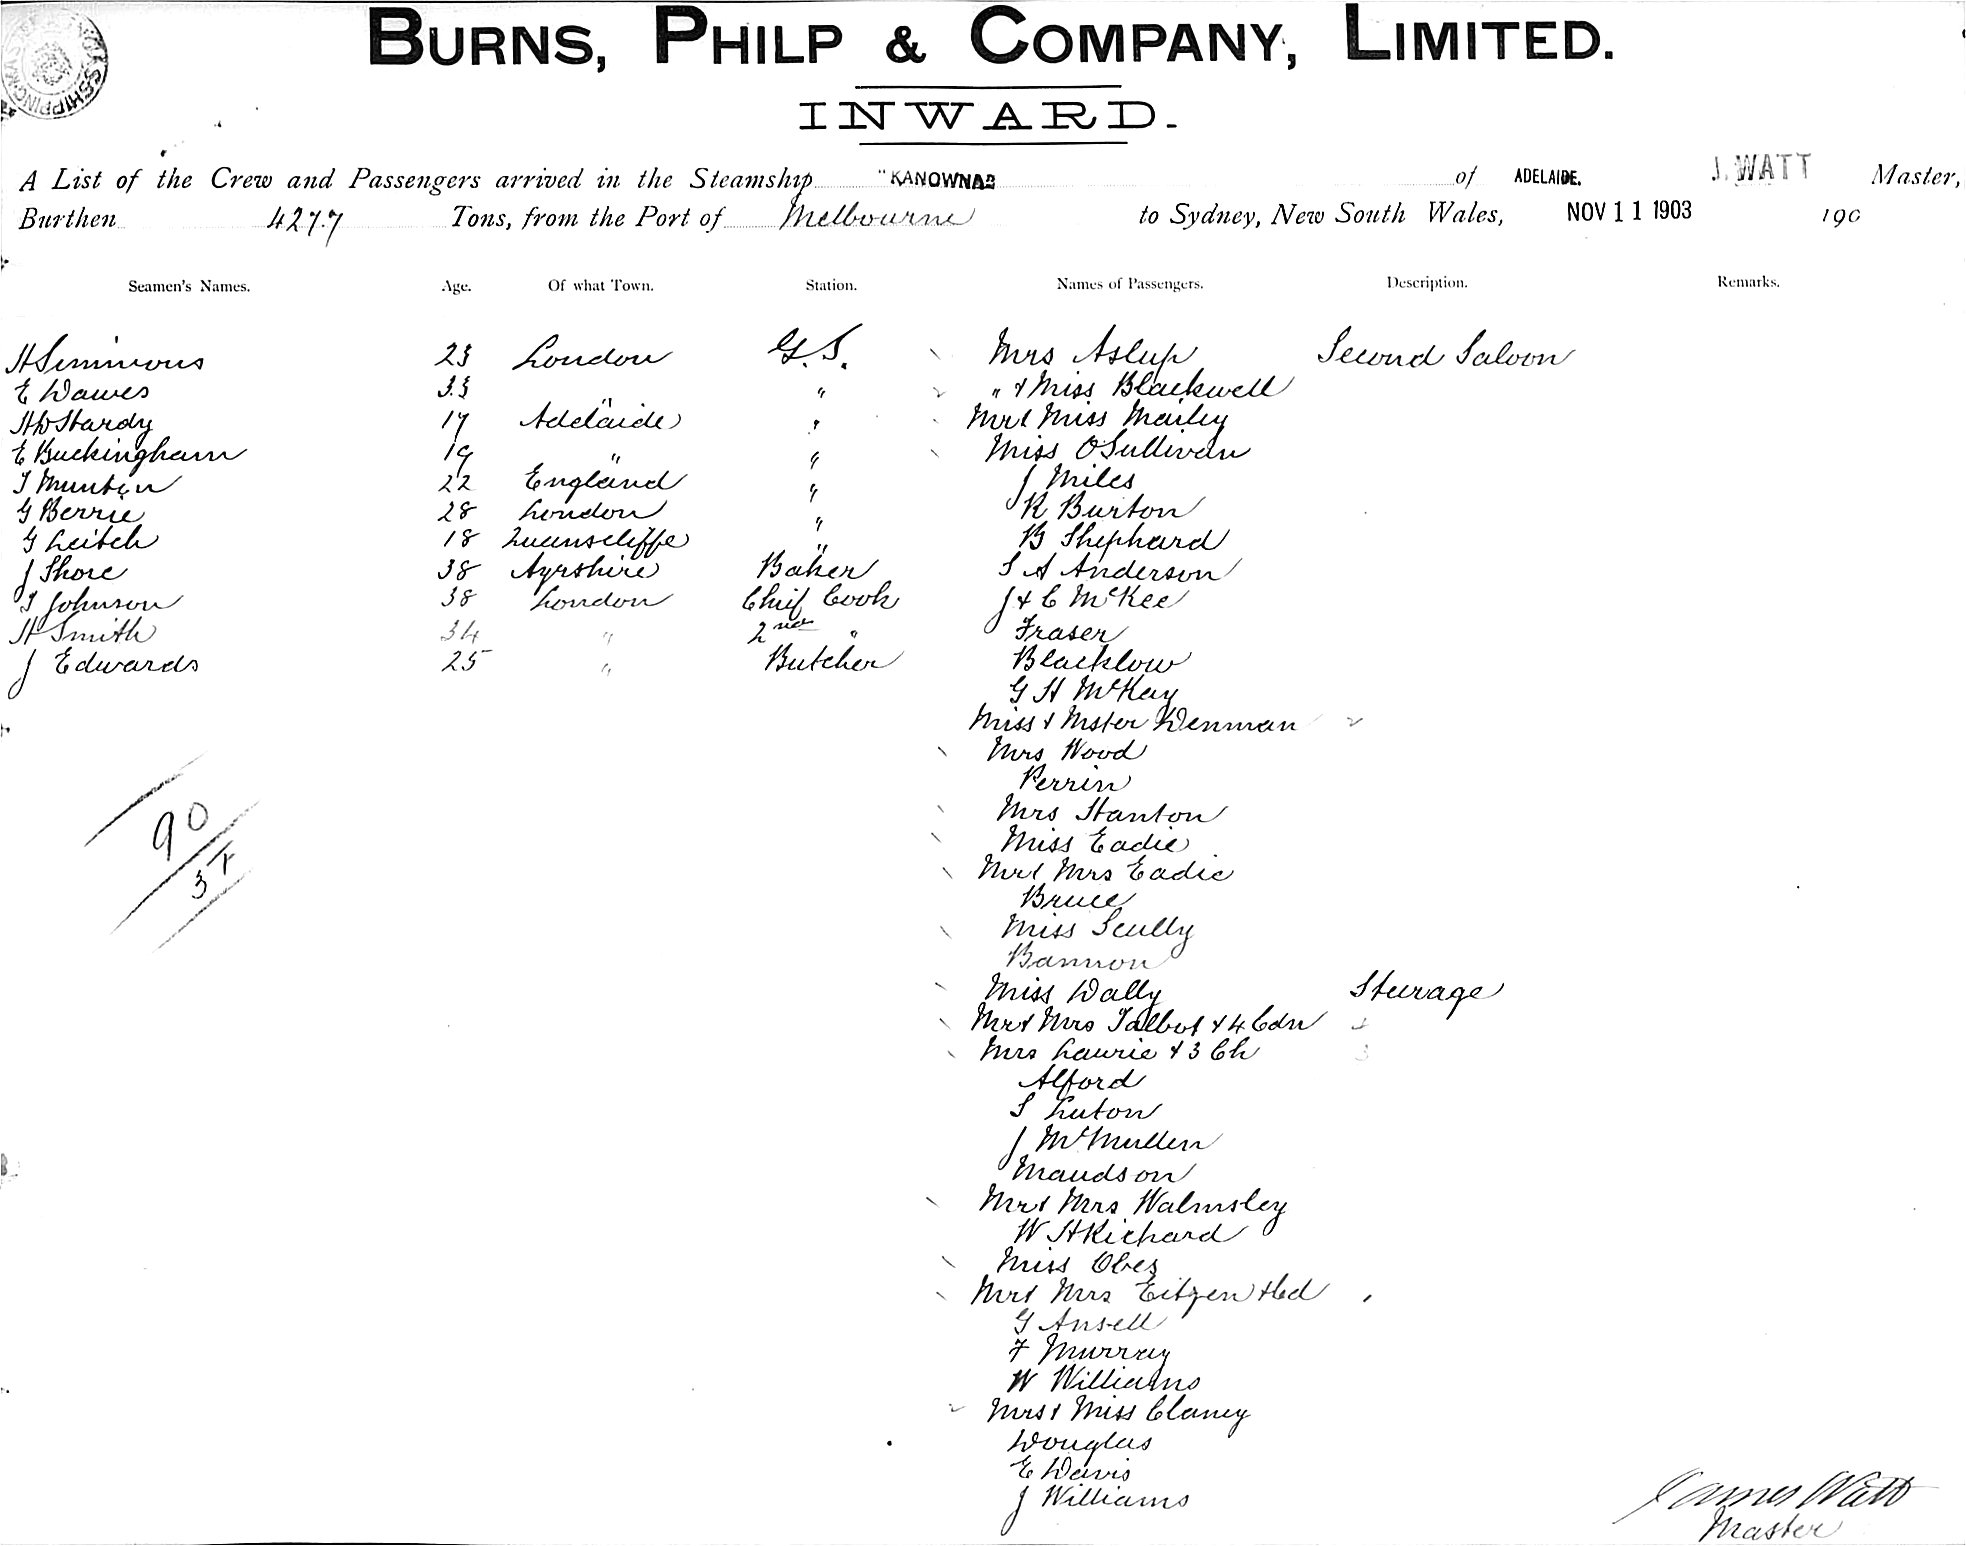 BURNS, PHILP & COMPANY, LIMITED.
INWARD.
A List of the Crew and Passengers arrived in the Steamship "KANOWNA" of ADELAIDE. J. WATT Master,
Burthen 4277 Tons, from the Port of Melbourne to Sydney, New South Wales, NOV 11 1903 190
Seamen's Names. Age. Of what Town. Station. Names of Passengers. Description. Remarks.
H Simmons 23 London G.S. Mrs Aslup Second Saloon
E Dawes 33 " " " & Miss Blackwell
H D Hardy 17 Adelaide " Mr & Miss Mailey
E Buckingham 19 " " Miss O'Sullivan
T Munten 22 England " J Miles
G Berrie 28 London " R Burton
G Leitch 18 Queenscliffe " B Shephard
J Shore 38 Ayrshire Baker S A Anderson
T Johnson 38 London Chief Cook J & C McKee
H Smith 34 " 2nd " Fraser
J Edwards 25 " Butcher Blacklow
G H McKay
Miss & Mster Denman
Mrs Wood
Perrin
Mrs Stanton
Miss Eadie
Mr & Mrs Eadie
Bruce
Miss Scully
Bannon
Miss Dally Steerage
Mr & Mrs Talbot & 4 Cdn
Mrs Laurie & 3 Ch
Alford
S Luton
J McMullen
Maudson
Mr & Mrs Walmsley
W H Richard
Miss Obes
Mr & Mrs Eitzen & Cd
G Ansell
F Murray
W Williams
Mrs & Miss Clancy
Douglas
E Davis
J Williams
90
James Watt
Master